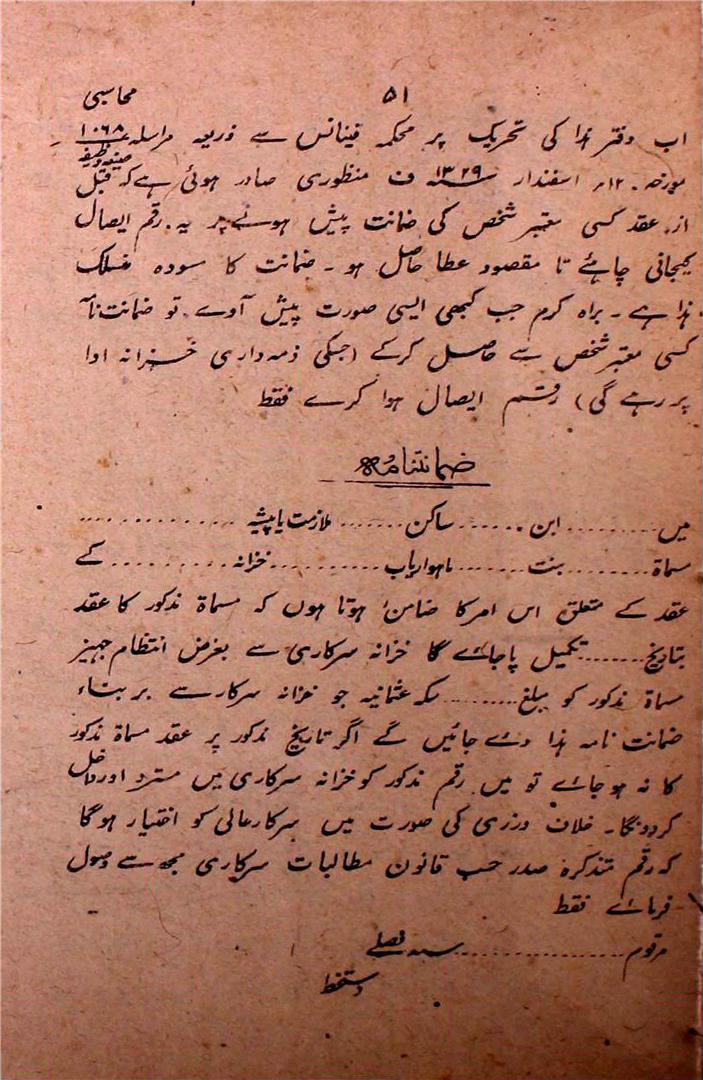 ۵۱
محاسبی
اب دفتر ہذا کی تحریک پر محکمہ فینانس سے ذریعہ مراسلہ ۱۰۶۸
صیغہ وظیفہ
مورخہ ۱۲ر اسفندار ۱۳۲۹ ف منظوری صادر ہوئی ہے کہ قبل
از عقد کسی معتبر شخص کی ضمانت پیش ہونے پر یہ رقم ایصال
کیجانی چاہئے تا مقصود عطا حاصل ہو ۔ ضمانت کا مسودہ منسلک
ہذا ہے ۔ براہ کرم جب کبھی ایسی صورت پیش آوے تو ضمانت نامہ
کسی معتبر شخص سے حاصل کرکے (جسکی ذمہ داری خزانہ ادا
پر رہے گی) رقم ایصال ہوا کرے فقط
ضمانتنامہ
میں ......... ابن ...... ساکن ....... ملازمت یا پیشہ ............
مسماۃ ........ بنت ....... ماہوار یاب .......... خزانہ ......... کے
عقد کے متعلق اس امر کا ضامن ہوتا ہوں کہ مسماۃ مذکور کا عقد
بتاریخ ....... تکمیل پا جائے گا خزانہ سرکاری سے بغرض انتظام جہیز
مسماۃ مذکور کو مبلغ ........ سکہ عثمانیہ جو خزانہ سرکار سے بر بناء
ضمانت نامہ ہذا دئے جائیں گے اگر تاریخ مذکور پر عقد مسماۃ مذکور
کا نہ ہو جائے تو میں رقم مذکور کو خزانہ سرکاری میں مسترد اور داخل
کردونگا ۔ خلاف ورزی کی صورت میں سرکار عالی کو اختیار ہوگا
کہ رقم متذکرہ صدر حسب قانون مطالبات سرکاری مجھ سے وصول
فرمائے فقط
مرقوم .................. سنہ فصلی
دستخط